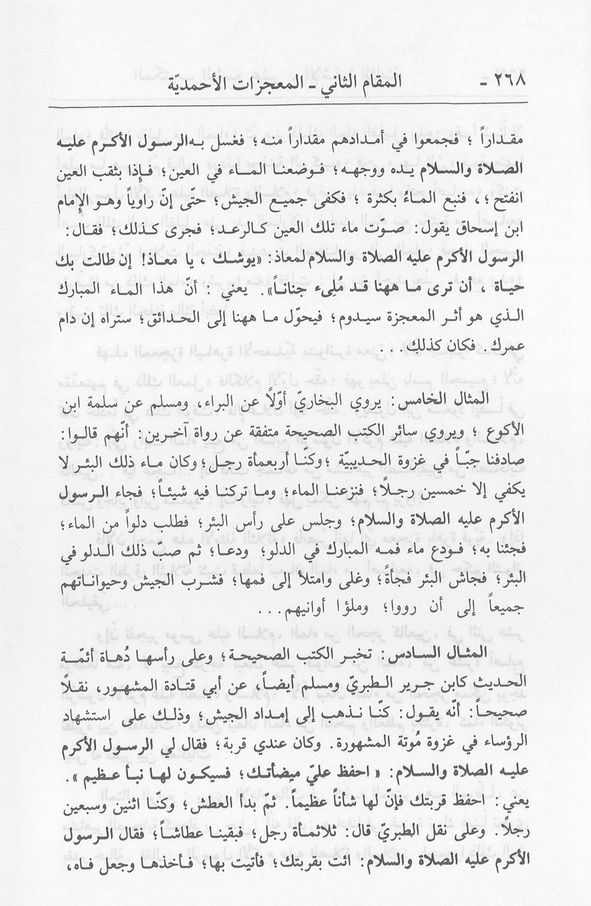 ٢٦٨ - المقام الثاني - المعجزات الأحمديّة
مقداراً ؛ فجمعوا في أمدادهم مقداراً منه؛ فغسل به الرسول الأكرم عليه
الصلاة والسلام يده ووجهه؛ فوضعنا الماء في العين؛ فإذا بثقب العين
انفتح؛ ، فنبع الماءُ بكثرة ؛ فكفى جميع الجيش؛ حتى إنّ راوياً وهو الإمام
ابن إسحاق يقول: صوّت ماء تلك العين كالرعد؛ فجرى كذلك؛ فقال:
الرسول الأكرم عليه الصلاة والسلام لمعاذ: «يوشك ، يا معاذ! إن طالت بك
حياة ، أن ترى ما ههنا قد مُلِىء جناناً». يعني : أنّ هذا الماء المبارك
الذي هو أثر المعجزة سيدوم؛ فيحوّل ما ههنا إلى الحدائق؛ ستراه إن دام
عمرك. فكان كذلك...
المثال الخامس: يروي البخاريّ أوّلاً عن البراء، ومسلم عن سلمة ابن
الأكوع ؛ ويروي سائر الكتب الصحيحة متفقة عن رواة آخرين: أنّهم قالوا:
صادفنا جبّاً في غزوة الحديبيّة ؛ وكنّا أربعمأة رجل؛ وكان ماء ذلك البئر لا
يكفي إلا خمسين رجلًا؛ فنزعنا الماء؛ وما تركنا فيه شيئاً؛ فجاء الرسول
الأكرم عليه الصلاة والسلام؛ وجلس على رأس البئر؛ فطلب دلواً من الماء؛
فجئنا به؛ فودع ماء فمه المبارك في الدلو؛ ودعا؛ ثم صبّ ذلك الدلو في
البئر؛ فجاش البئر فجأةً؛ وغلى وامتلأ إلى فمها؛ فشرب الجيش وحيواناتهم
جميعاً إلى أن رووا؛ وملؤا أوانيهم...
المثال السادس: تخبر الكتب الصحيحة؛ وعلى رأسها دُهاة أئمّة
الحديث كابن جرير الطبريّ ومسلم أيضاً، عن أبي قتادة المشهور، نقلًا
صحيحاً: أنّه يقول: كنّا نذهب إلى إمداد الجيش؛ وذلك على استشهاد
الرؤساء في غزوة مُوتة المشهورة. وكان عندي قربة؛ فقال لي الرسول الأكرم
عليه الصلاة والسلام: « احفظ عليّ ميضأتك؛ فسيكون لها نبأ عظيم ».
يعني: احفظ قربتك فإنّ لها شأناً عظيماً. ثمّ بدأ العطش؛ وكنّا اثنين وسبعين
رجلًا. وعلى نقل الطبريّ قال: ثلاثمأة رجل؛ فبقينا عطاشاً؛ فقال الرسول
الأكرم عليه الصلاة والسلام: ائت بقربتك؛ فأتيت بها؛ فأخذها وجعل فاه،